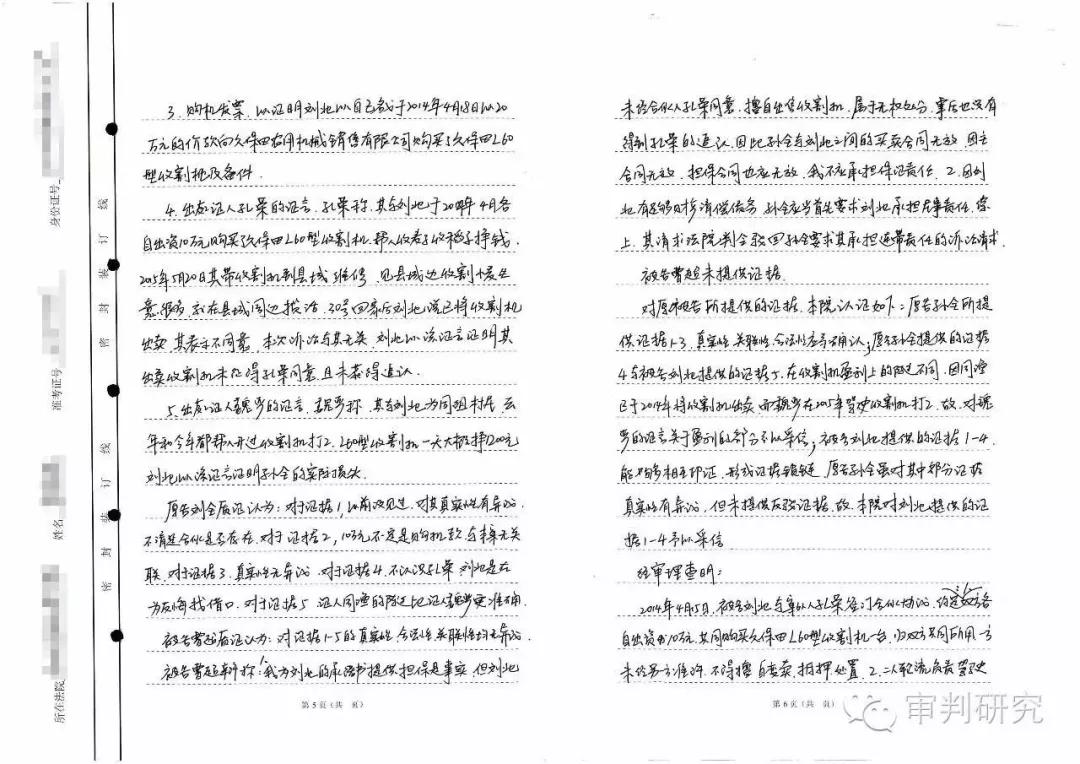 身份证号
准考证号
姓名
所在法院
密 封 装 订 线
密 封 装 订 线
3. 购机发票, 以证明刘北以自己名义于2014年4月8日以20
万元的价款向久保田农用机械销售有限公司购买了久保田L60
型收割机及备件.
4. 出庭证人孔荣的证言. 孔荣称, 其与刘北于2014年4月各
自出资10万元购买久保田L60型收割机, 帮人收麦子收稻子挣钱.
2015年5月20日其带收割机到县城维修, 见县城边收割
意很好, 就在县城周边揽活. 30号回家后刘北说已将收割机
出卖, 其表示不同意, 本次诉讼与其无关. 刘北以该证言证明其
出卖收割机未征得孔荣同意, 且未获得追认.
5. 出庭证人魏岁的证言. 魏岁称, 其与刘北为同组村民, 去
年和今年都帮人开过收割机打工. L60型收割机一天大概挣1200元
刘北以该证言证明孙全的实际损失.
原告刘全质证认为: 对证据1, 以前没见过, 对其真实性有异议,
不清楚合伙是否存在. 对于证据2, 10万元不一定是购机款, 与本案无关
联. 对于证据3, 真实性无异议. 对于证据4, 不认识孔荣, 刘北是在
为反悔找借口. 对于证据5, 证人同增的陈述比证人魏岁更准确.
被告曹超质证认为: 对证据1-5的真实性、合法性、关联性均无异议.
被告曹超辩称: 我为刘北的承诺书提供担保是事实, 但刘北
第5页(共 页)
未经合伙人孔荣同意, 擅自出售收割机, 属于无权处分, 事后也没有
得到孔荣的追认, 因此孙全与刘北之间的买卖合同无效, 因主
合同无效, 担保合同也应无效, 我不应承担保证责任. 2. 因刘
北有足够财产清偿债务, 孙全应当首先要求刘北承担民事责任. 综
上, 其请求法院判令驳回孙全要求其承担连带责任的诉讼请求.
被告曹超未提供证据.
对原被告所提供的证据, 本院认证如下: 原告孙全所提
供证据1-3, 真实性、关联性、合法性应予确认; 原告孙全提供的证据
4与被告刘北提供的证据5, 在收割机盈利上的陈述不同, 因同增
已于2014年将收割机出卖, 而魏岁在2015年驾驶收割机打工, 故, 对魏
岁的证言关于盈利的部分予以采信; 被告刘北提供的证据1-4,
能够相互印证, 形成证据锁链, 原告孙全虽对其中部分证据
真实性有异议, 但未提供反驳证据, 故, 本院对刘北提供的证
据1-4予以采信.
经审理查明:
2014年4月5日, 被告刘北与案外人孔荣签订合伙协议, 约定: 1. 双方各
自出资10万元, 共同购买久保田L60型收割机一台, 归双方共同所有, 一方
未经另一方准许, 不得擅自变卖、抵押、处置. 2. 二人轮流负责驾驶
第6页(共 页)
审判研究